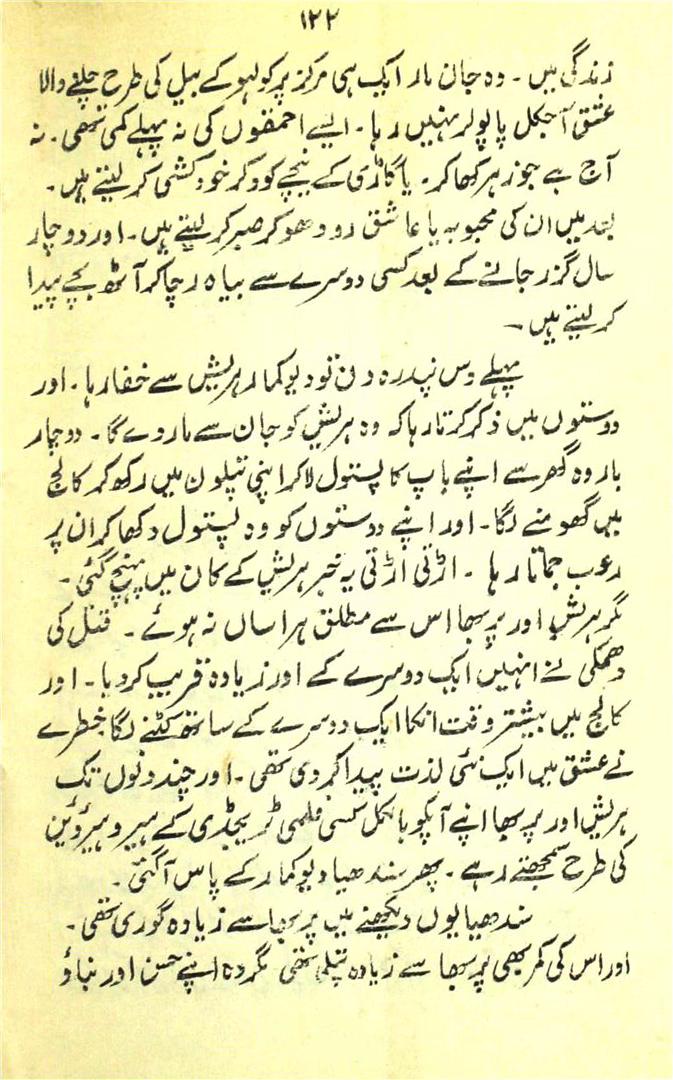 ۱۲۲
زندگی ہیں ۔ وہ جان مار ایک ہی مرکز پر کولہو کے بیل کی طرح چلنے والا
عشق آجکل پاپولر نہیں رہا ۔ ایسے احمقوں کی نہ پہلے کمی تھی ۔ نہ
آج ہے جو زہر کھا کر ۔ یا گاڑی کے نیچے کود کر خودکشی کر لیتے ہیں ۔
بعد میں ان کی محبوبہ یا عاشق رو دھو کر صبر کر لیتے ہیں ۔ اور دو چار
سال گزر جانے کے بعد کسی دوسرے سے بیاہ رچا کر آٹھ بچے پیدا
کر لیتے ہیں ۔
پہلے دس پندرہ دن تو دیو کمار ہریش سے خفا رہا ۔ اور
دوستوں میں ذکر کرتا رہا کہ وہ ہریش کو جان سے مار دے گا ۔ دو چار
بار وہ گھر سے اپنے باپ کا پستول لا کر اپنی پتلون میں رکھ کر کالج
میں گھومنے لگا ۔ اور اپنے دوستوں کو وہ پستول دکھا کر ان پر
رعب جماتا رہا ۔ اڑتی اڑتی یہ خبر ہریش کے کان میں پہنچ گئی ۔
مگر ہریش اور پربھا اس سے مطلق ہراساں نہ ہوئے ۔ قتل کی
دھمکی نے انہیں ایک دوسرے کے اور زیادہ قریب کر دیا ۔ اور
کالج میں بیشتر وقت انکا ایک دوسرے کے ساتھ کٹنے لگا خطرے
نے عشق میں ایک نئی لذت پیدا کر دی تھی ۔ اور چند دنوں تک
ہریش اور پربھا اپنے آپکو بالکل کسی فلمی ٹریجڈی کے ہیرو ہیروئین
کی طرح سمجھتے رہے ۔ پھر سندھیا دیو کمار کے پاس آگئی ۔
سندھیا یوں دیکھنے میں پربھا سے زیادہ گوری تھی ۔
اور اس کی کمر بھی پربھا سے زیادہ پتلی تھی مگر وہ اپنے حسن اور بناؤ